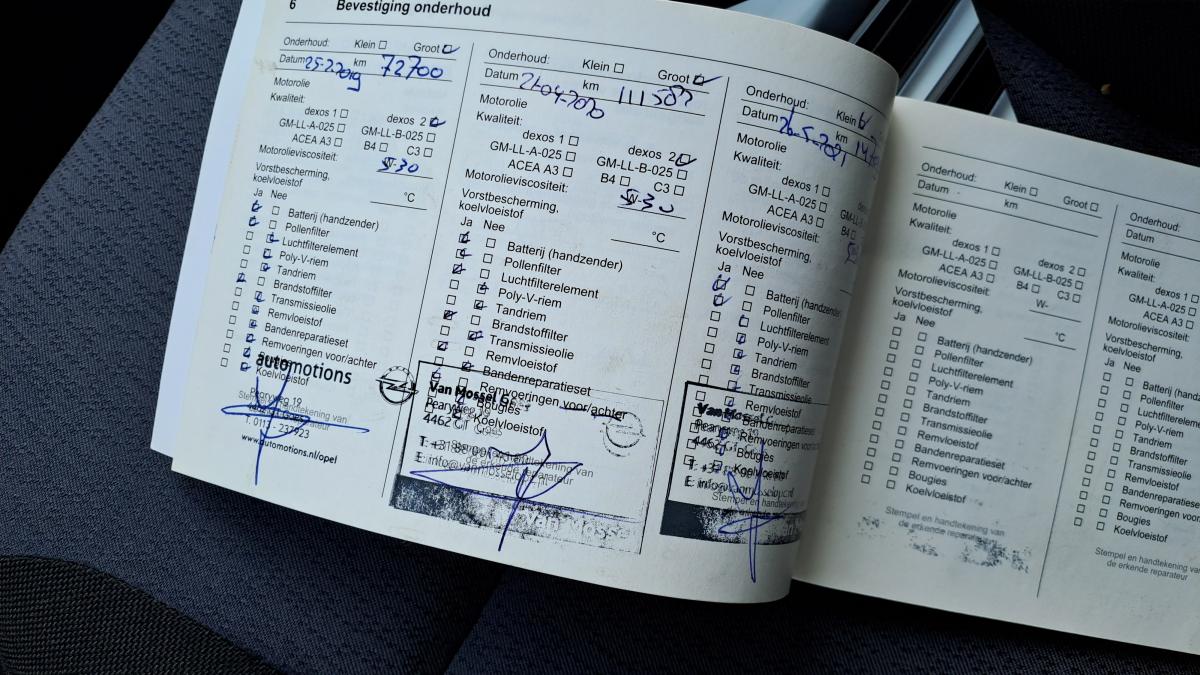 6 Bevestiging onderhoud
Onderhoud: Klein Groot
Datum 25-2-2019 km 72700
Motorolie
Kwaliteit:
dexos 1 dexos 2
GM-LL-A-025 GM-LL-B-025
ACEA A3 B4 C3
Motorolieviscositeit: 5W-30
Vorstbescherming,
koelvloeistof °C
Ja Nee
Batterij (handzender)
Pollenfilter
Luchtfilterelement
Poly-V-riem
Tandriem
Brandstoffilter
Transmissieolie
Remvloeistof
Bandenreparatieset
Remvoeringen voor/achter
Koelvloeistof
automotions
Pearyweg 19
www.automotions.nl/opel
Onderhoud: Klein Groot
Datum 21-04-2020 km
Motorolie
Kwaliteit:
dexos 1 dexos 2
GM-LL-A-025 GM-LL-B-025
ACEA A3 B4 C3
Motorolieviscositeit: 5W-30
Vorstbescherming,
koelvloeistof °C
Ja Nee
Batterij (handzender)
Pollenfilter
Luchtfilterelement
Poly-V-riem
Tandriem
Brandstoffilter
Transmissieolie
Remvloeistof
Bandenreparatieset
Remvoeringen voor/achter
Bougies
Koelvloeistof
Van Mossel
4462
Onderhoud: Klein
Datum 26-5-2021 km
Motorolie
Kwaliteit:
dexos 1
GM-LL-A-025
ACEA A3 B4
Motorolieviscositeit:
Vorstbescherming,
koelvloeistof
Ja Nee
Batterij (handzender)
Pollenfilter
Luchtfilterelement
Poly-V-riem
Tandriem
Brandstoffilter
Transmissieolie
Remvloeistof
Bandenreparatieset
Remvoeringen
Bougies
Koelvloeistof
Van Mossel
4462
Onderhoud: Klein Groot
Datum km
Motorolie
Kwaliteit:
dexos 1 dexos 2
GM-LL-A-025 GM-LL-B-025
ACEA A3 B4 C3
Motorolieviscositeit: W-
Vorstbescherming,
koelvloeistof °C
Ja Nee
Batterij (handzender)
Pollenfilter
Luchtfilterelement
Poly-V-riem
Tandriem
Brandstoffilter
Transmissieolie
Remvloeistof
Bandenreparatieset
Remvoeringen voor/achter
Bougies
Koelvloeistof
Stempel en handtekening van
de erkende reparateur
Onderhoud:
Datum
Motorolie
Kwaliteit:
dexos 1
GM-LL-A-025
ACEA A3
Motorolieviscositeit:
Vorstbescherming,
koelvloeistof
Ja Nee
Pollenfilter
Poly-V-riem
Tandriem
Brandstoffilter
Transmissieolie
Remvloeistof
Bandenreparatieset
Remvoeringen
Bougies
Koelvloeistof
Stempel en handtekening
de erkende reparateur